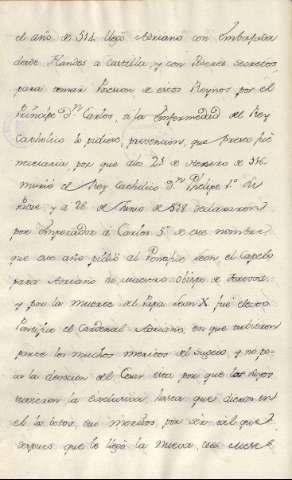 el año de 514 llegó Adriano con Embaxada
desde Flandes a Castilla, y con Poderes secretos
para tomar Posesion de estos Reynos por el
Principe Dn Carlos, si la Enfermedad del Rey
Catholico lo pidiese, prevencion, que presto fué
necesaria, por que dia 23 de Henero de 516
murió el Rey Catholico Dn
y a 28 de Junio de 518 declararon
por Emperador a Carlos 5º de este nombre
que ese año pidió al Pontifice Leon, el Capelo
para Adriano su Maestro Obispo de Tortosa
y por la muerte del Papa Leon X fué electo
Pontifice el Cardenal Adriano, en que tubieron
parte los muchos meritos del sugeto, y no po-
ca la devocion del Cesar
la exclusiva, que dieron en
el
despues que le llegó la nueva,